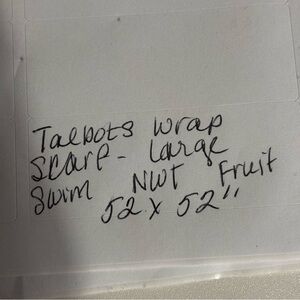 Talbots Wrap
Scarf - Large
Swim NWT Fruit
52 x 52"